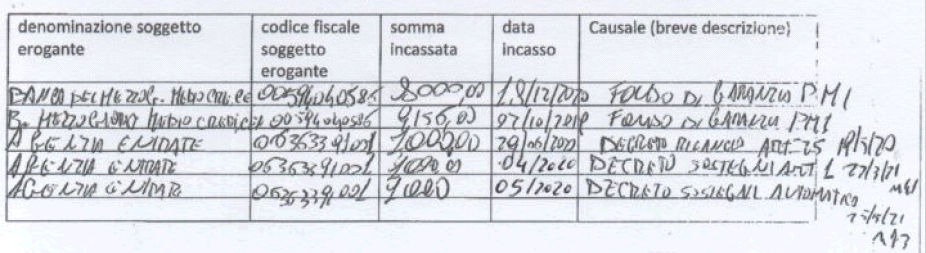 denominazione soggetto erogante codice fiscale soggetto erogante somma incassata data incasso Causale (breve descrizione)
BANCA DEL MEZZOG. MEDIOCRE.CE 00594040586 8000,00 18/12/2020 FONDO DI GARANZIA P.M I
B. MEZZOGIORNO MEDIO CREDICE 00594040586 9156,00 07/10/2020 FONDO DI GARANZIA PMI
AGENZIA ENTRATE 06363391001 1000,00 29/06/2020 DECRETO RILANCIO ART-25 19/5/20
AGENZIA ENTRATE 06363391001 04/2020 DECRETO SOSTEGNI ART 1 22/3/21
AGENZIA ENTRATE 06363391001 05/2020 DECRETO SOSTEGNI AUTOMATICO